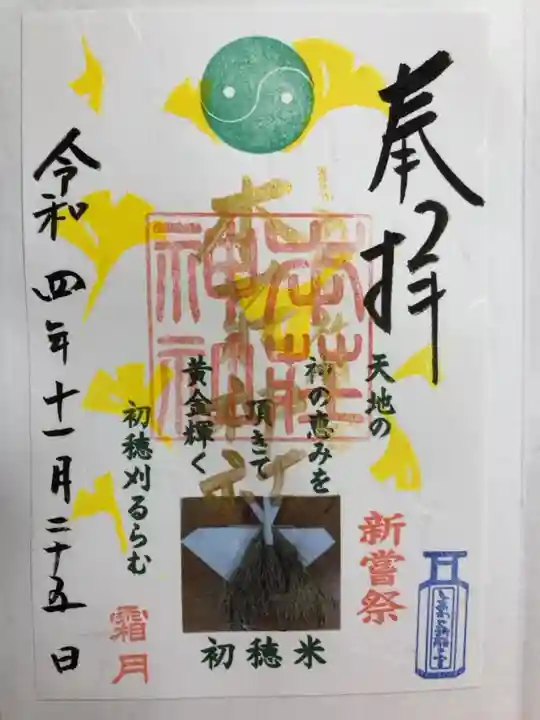 奉拝
本荘神社
本荘神社
天地の
神の恵みを
頂きて
黄金輝く
初穂刈るらむ
新嘗祭
初穂米
霜月
令和四年十一月二十五日